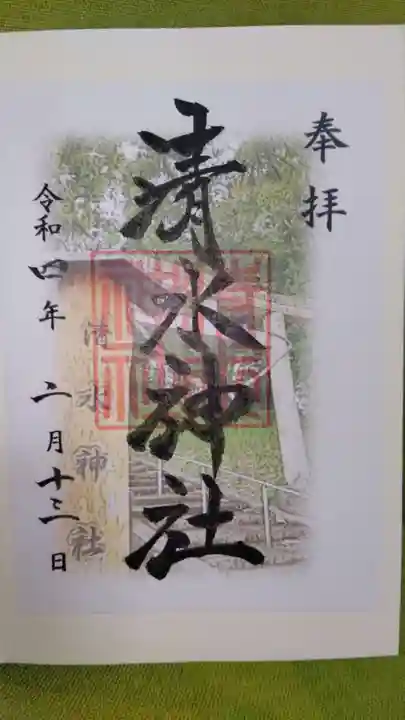 奉拝
清水神社
清水神社
令和四年二月十三日